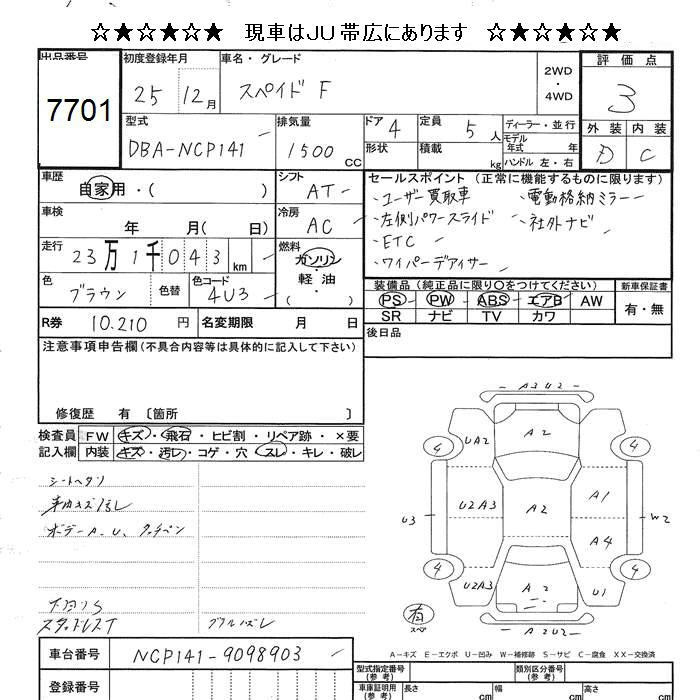 ☆★☆★☆★ 現車はJU帯広にあります ☆★☆★☆★
出品番号 初度登録年月 車名・グレード 評価点
7701 25 12月 スペイド F 2WD・4WD 3
型式 排気量 ドア 4 定員 5人 ディーラー・並行 外装 内装
DBA-NCP141 1500cc 形状 積載 kg モデル年式 年 ハンドル 左・右 D C
車歴 自家用・( ) シフト AT セールスポイント(正常に機能するものに限ります)
車検 年 月( 日) 冷房 AC ・ユーザー買取車 ・電動格納ミラー
・左側パワースライド ・社外ナビ
・ETC
・ワイパーデアイサー
走行 23万1千043km 燃料 ガソリン・軽油 ( )
色 ブラウン 色替 色コード 4U3
装備品(純正品に限り○をつけてください) 新車保証書
PS PW ABS エアB AW 有・無
SR ナビ TV カワ
R券 10.210円 名変期限 月 日
後日品
注意事項申告欄(不具合内容等は具体的に記入して下さい)
修復歴 有〔箇所 〕
検査員記入欄 FW キズ・飛石・ヒビ割・リペア跡・×要
内装 キズ・汚レ・コゲ・穴・スレ・キレ・破レ
シートヘタリ
ボデーA.U、タッチペン
下回りS
スタッドレスT
A3U2
4 UA2 A2 4
U3 U2A3 A2 A1 W2
A4
4 U2A3 A2 U1 4
有 スペア
A2U2
A-キズ E-エクボ U-凹み W-補修跡 S-サビ C-腐食 XX-交換済
車台番号 NCP141-9098903
登録番号
型式指定番号(参考) 類別区分番号(参考)
車庫証明用(参考) 長さ cm 幅 cm 高さ cm